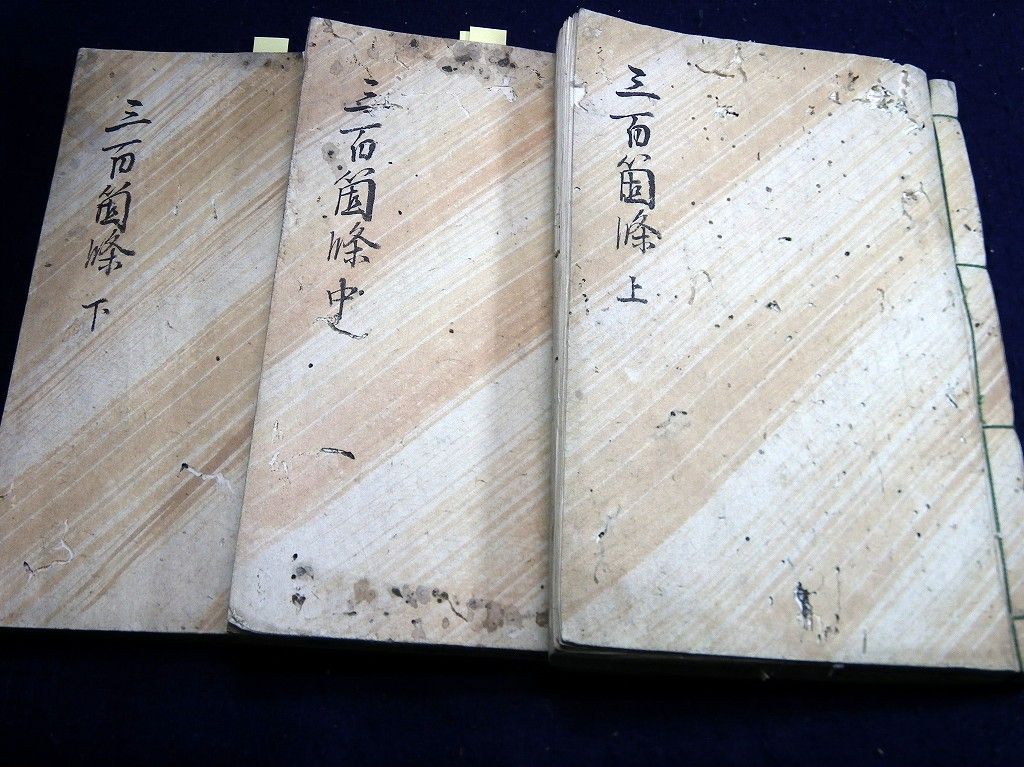 三百箇條 上
三百箇條 中
三百箇條 下